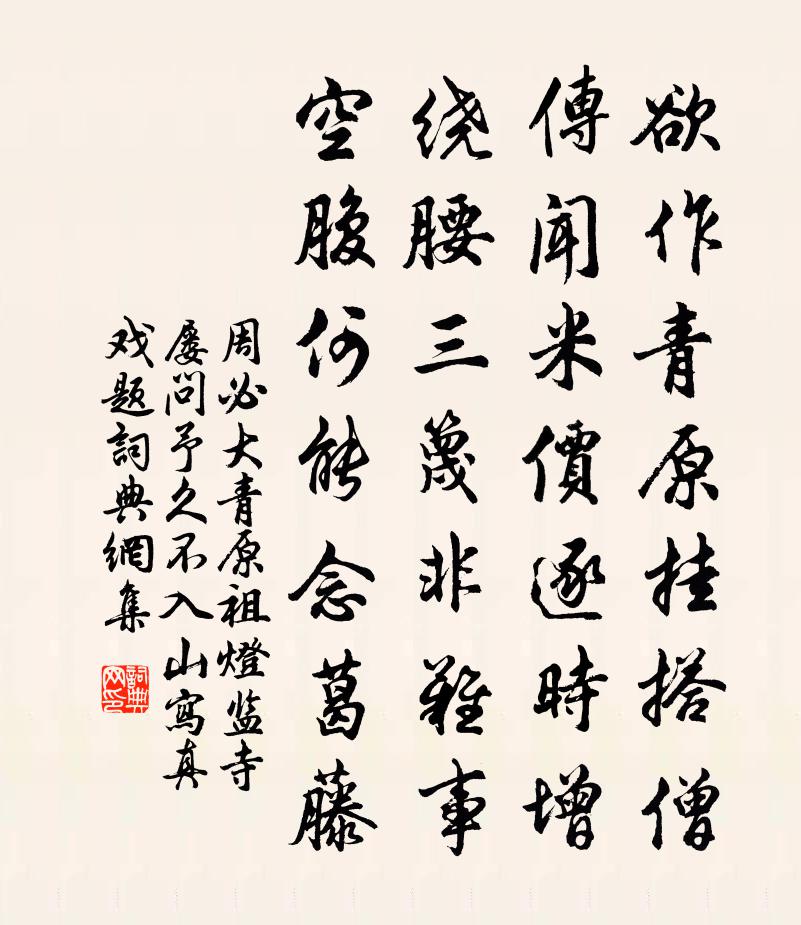 欲作青原挂搭僧
傳聞米價逐時增
绕腰三篾非難事
空腹何能念葛藤
周必大青原祖燈监寺
屡問予久不入山寫真
戏題詞典網集
詞典网印